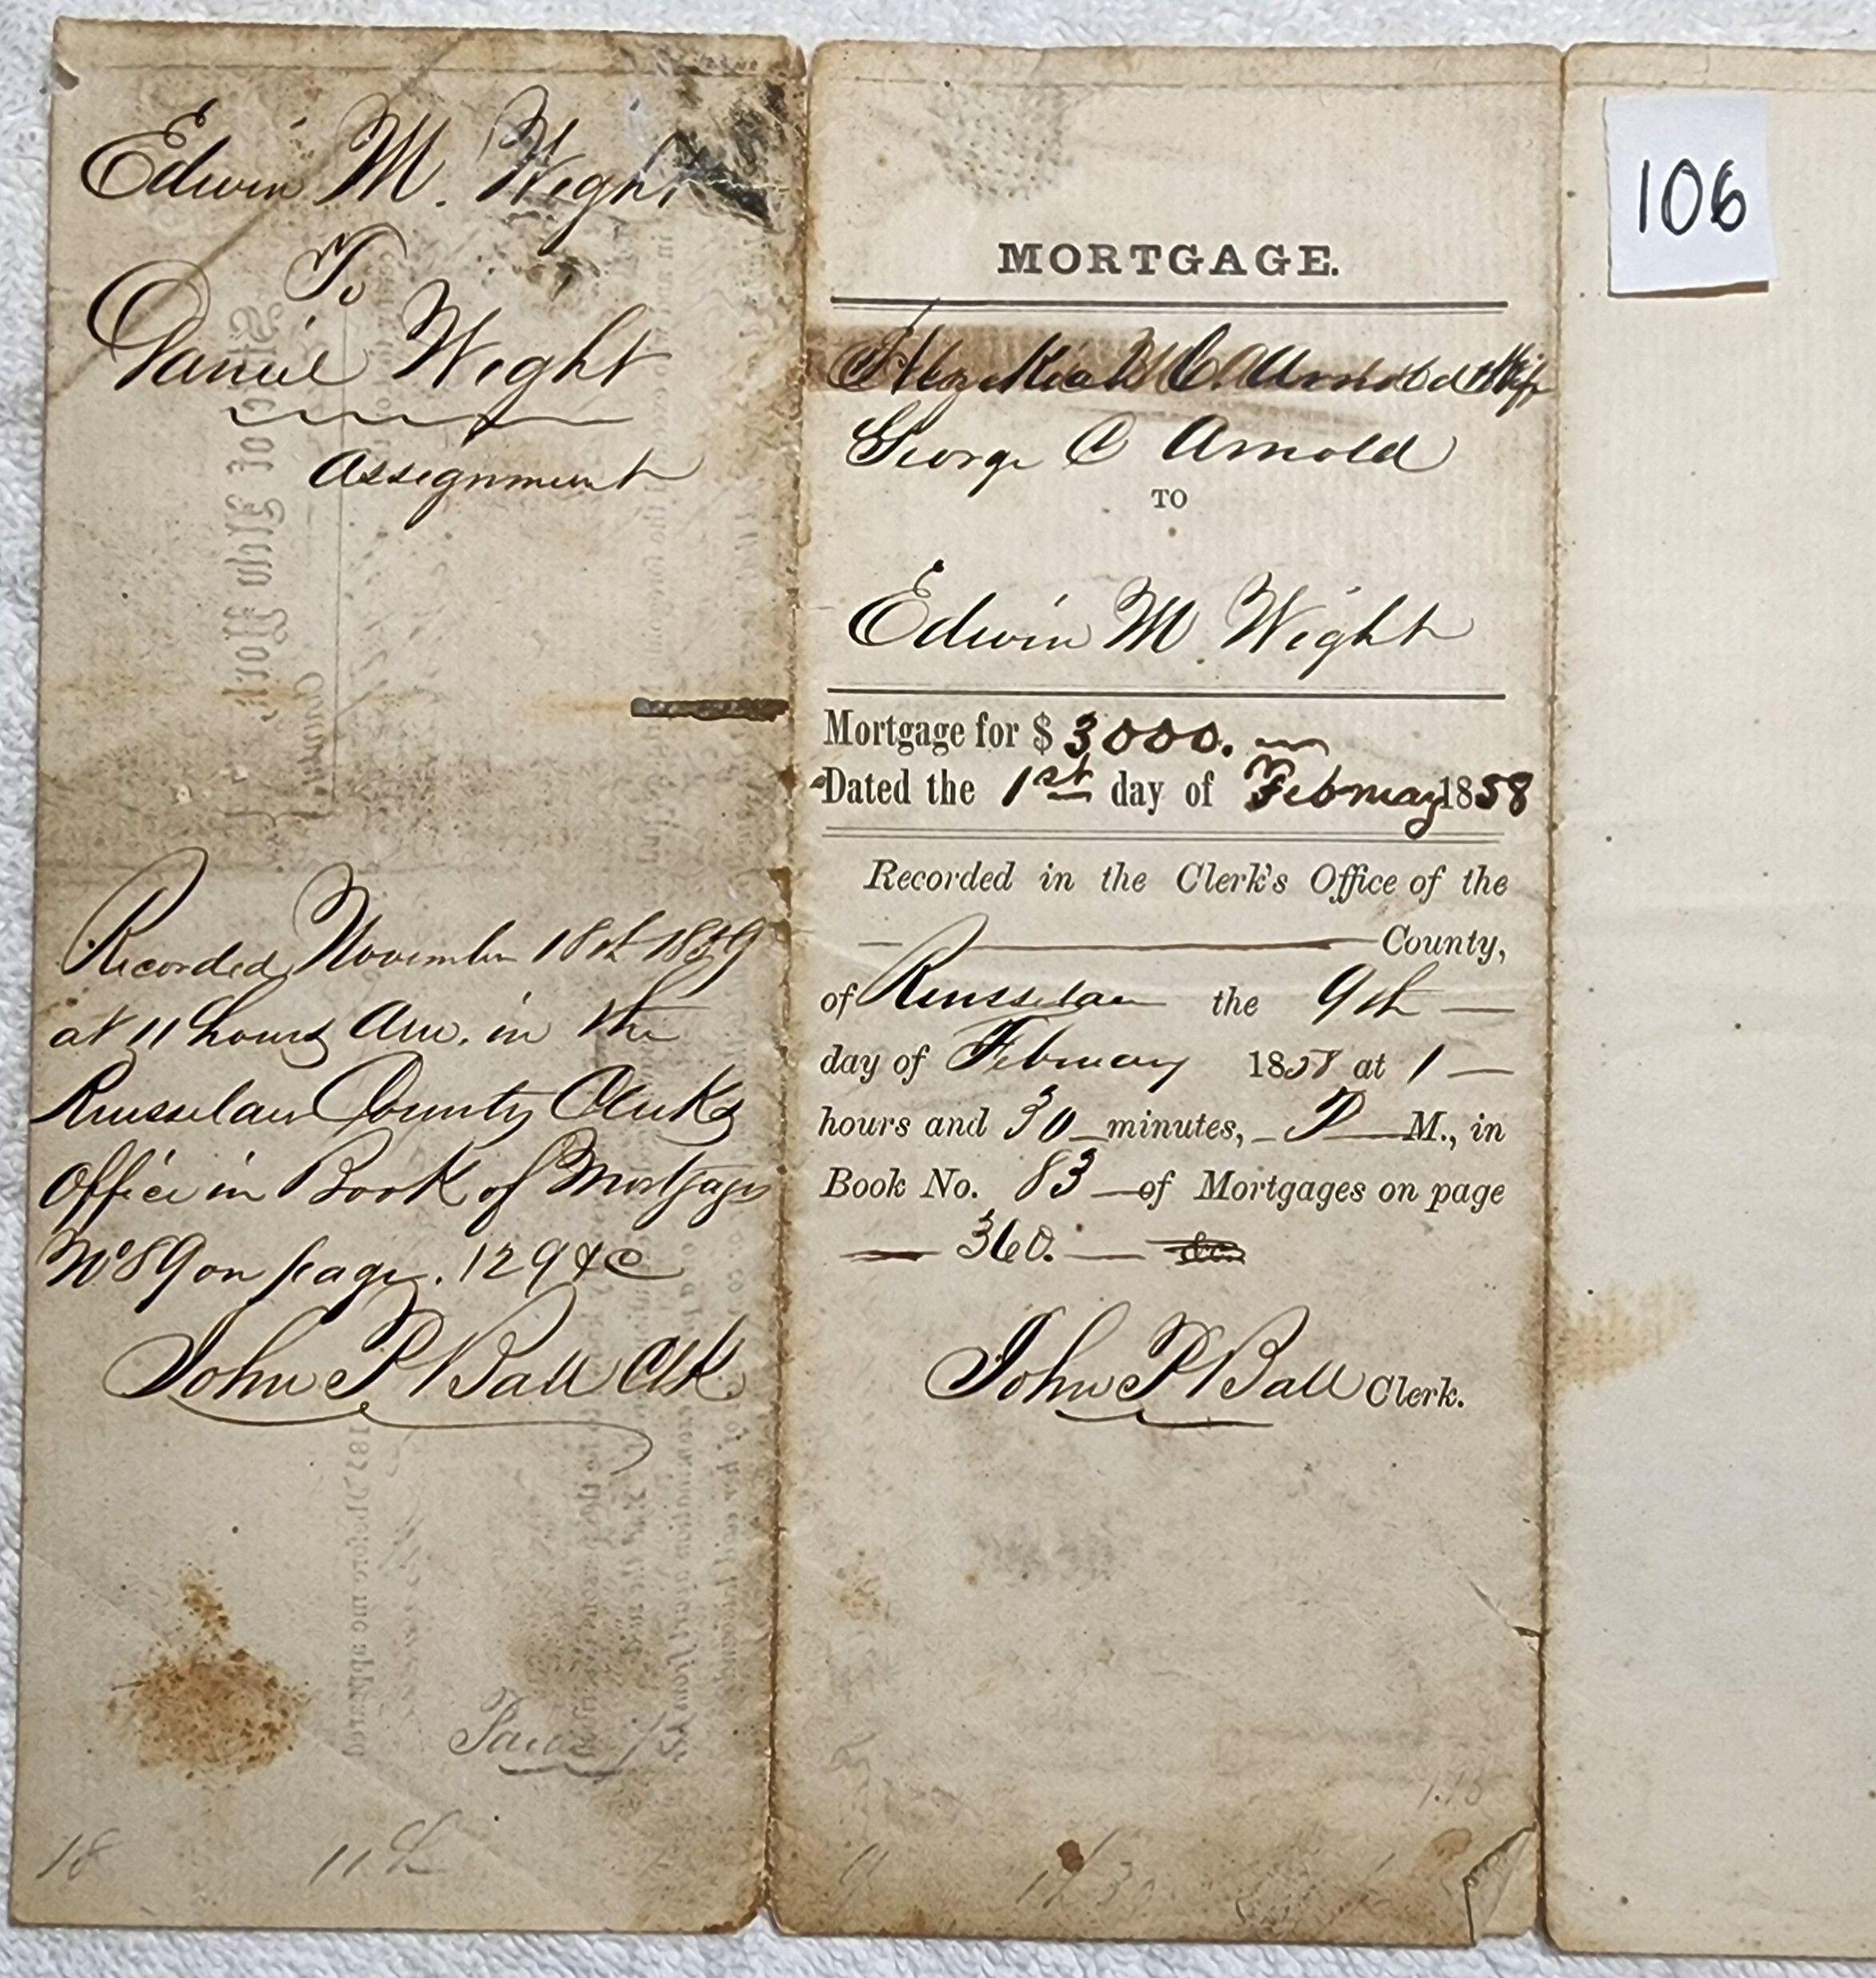 Edwin M. Wight
To
Daniel Wight
Assignment
Recorded November 18th 1859
at 11 hours Am. in the
Rensselaer County Clerks
Office in Book of Mortgages
No 89 on page. 129 &c
John P Ball Clk.
18
11th
MORTGAGE.
Hezekiah C. Arnold & Wife
George C Arnold
TO
Edwin M. Wight
Mortgage for $ 3000.
Dated the 1st day of February 1858
Recorded in the Clerk's Office of the
County,
of Rensselaer the 9th
day of February 1858 at 1
hours and 30 minutes, P M., in
Book No. 83 of Mortgages on page
360.
John P Ball Clerk.
106